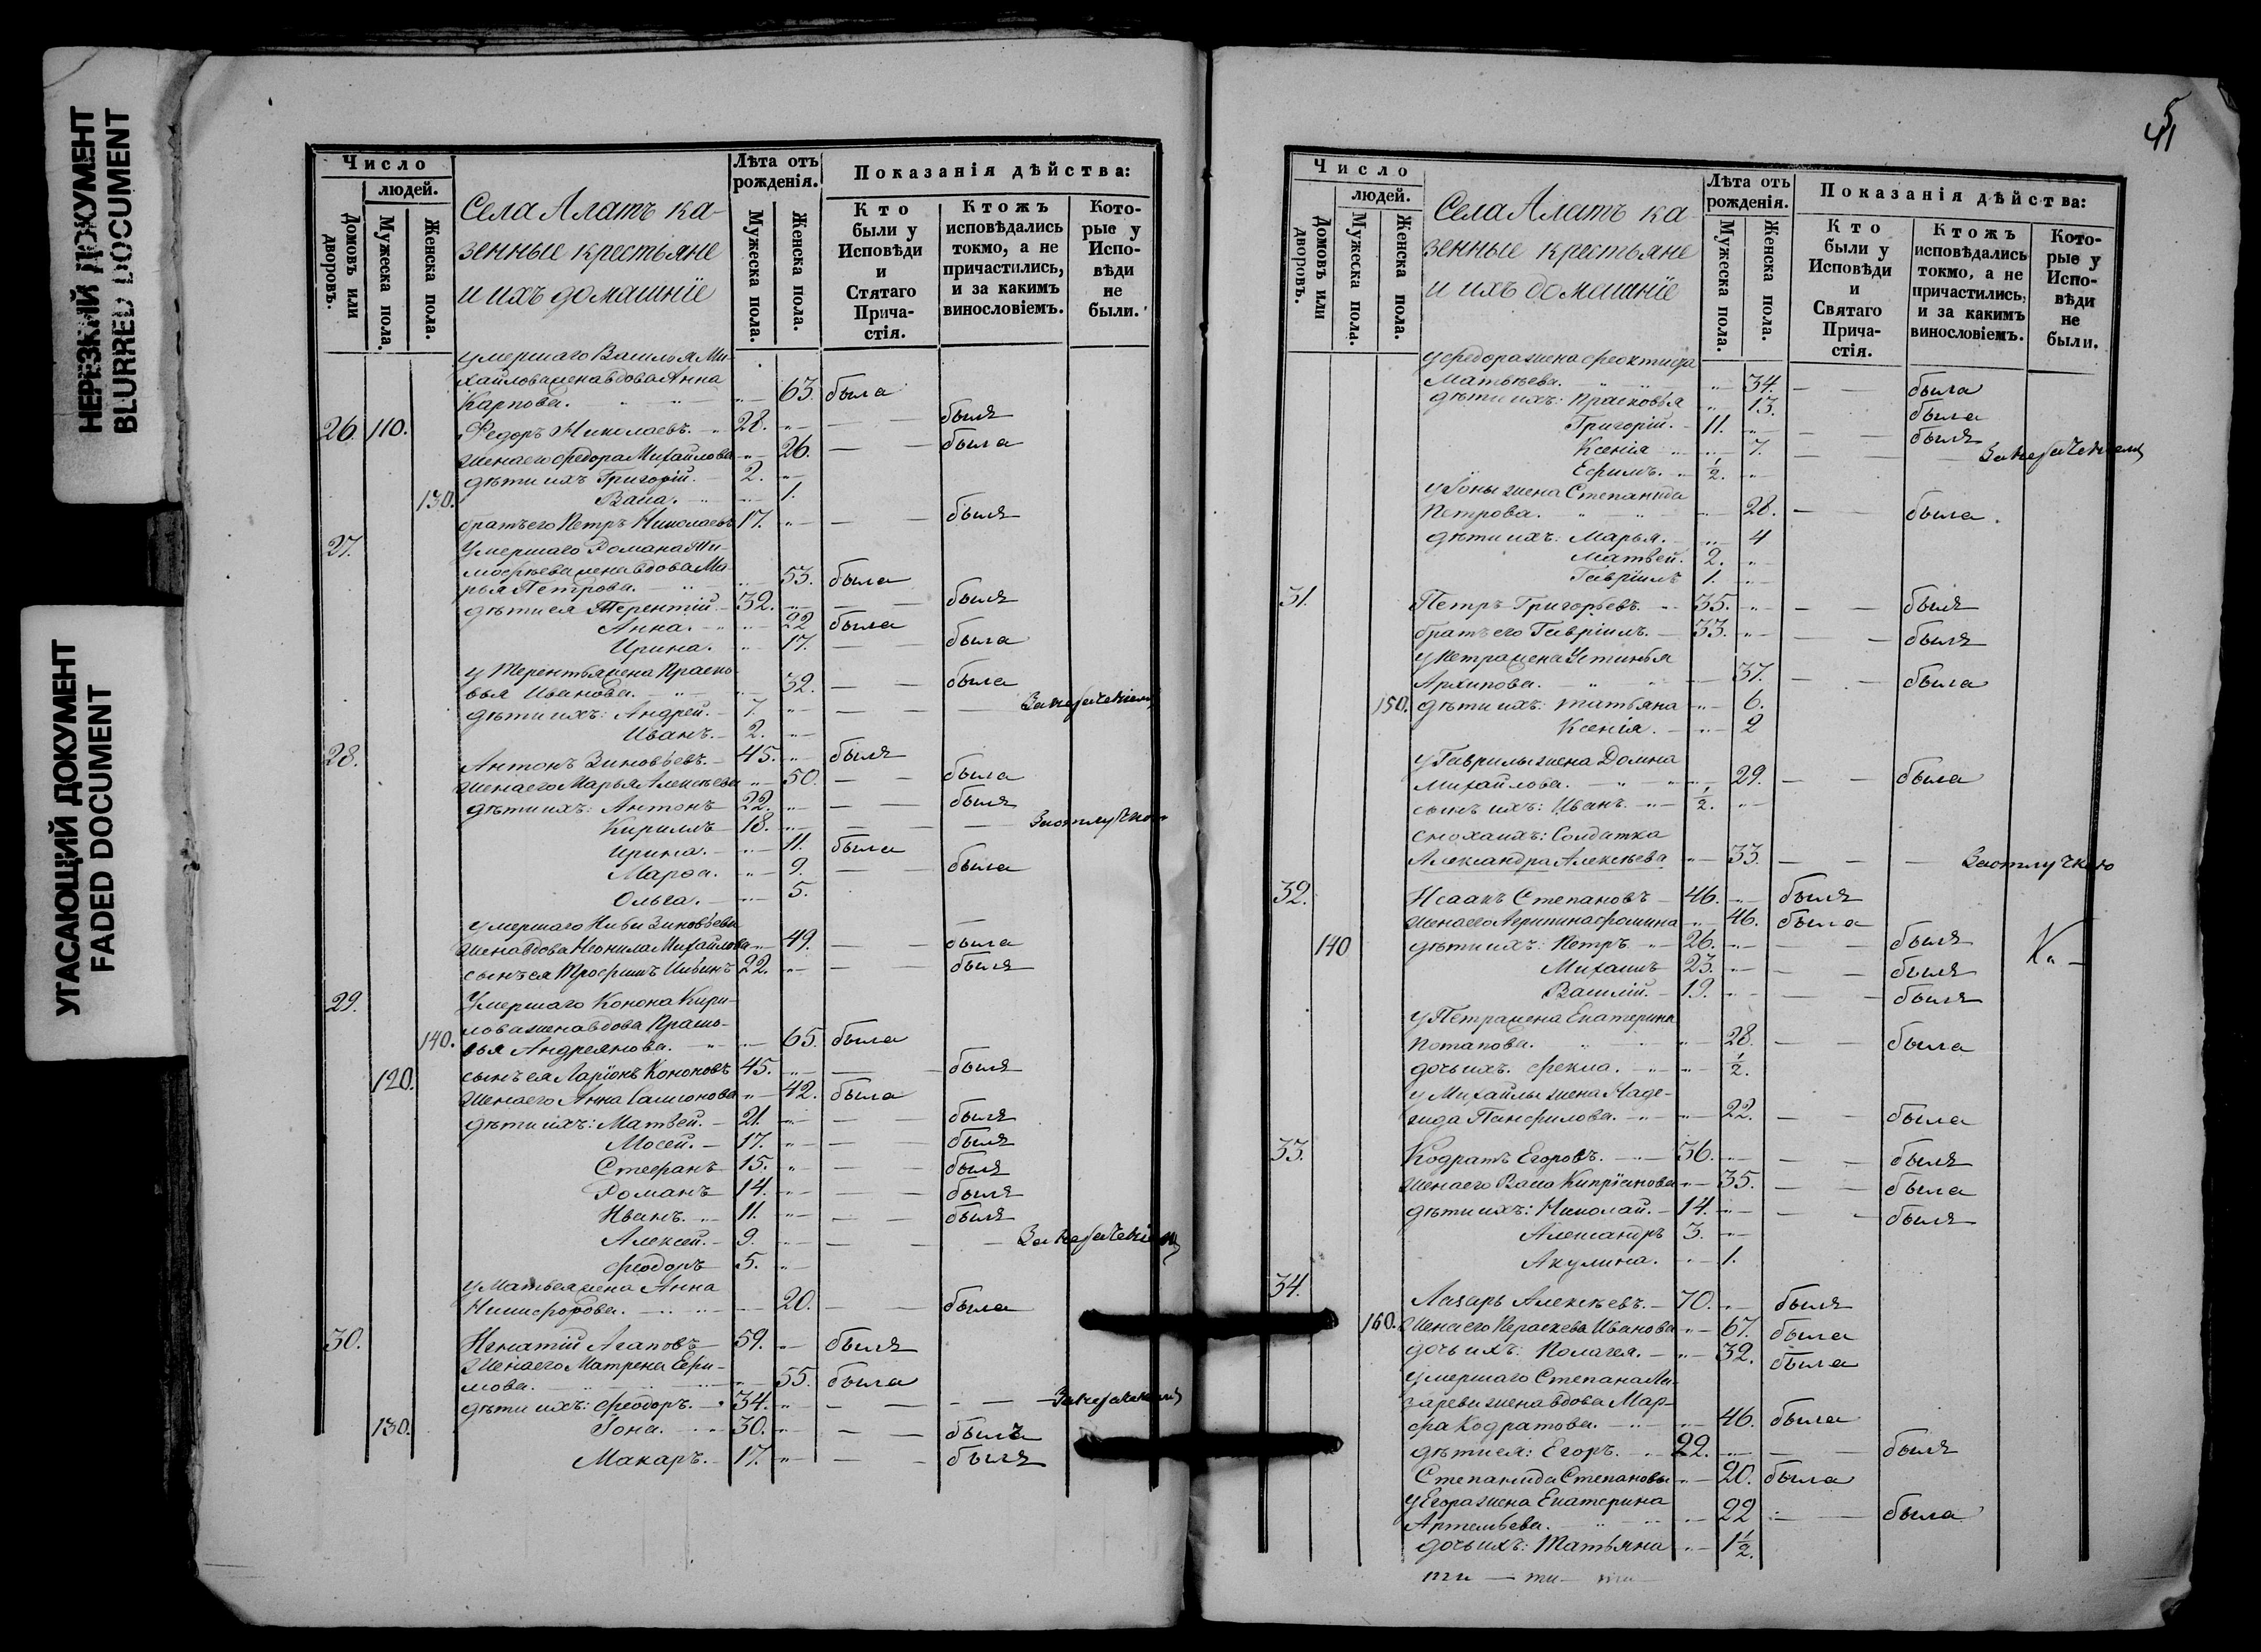 НЕРЕЗКИЙ ДОКУМЕНТ
BLURRED DOCUMENT
УГАСАЮЩИЙ ДОКУМЕНТ
FADED DOCUMENT
Число
людей.
Домовъ или дворовъ.
Мужеска пола.
Женска пола.
Села Алатъ ка-
зенные крестьяне
и ихъ домашніе
Лѣта отъ рожденія.
Мужеска пола.
Женска пола.
Показанія дѣйства:
Кто были у Исповѣди и Стятаго Прича-стія.
Ктожъ исповѣдались токмо, а не причастились, и за какимъ винословіемъ.
Кото-рые у Испо-вѣди не были.
умершаго Василья Ми-
хайлова жена вдова Анна
Карпова. 63. была
26. 110. Федоръ Николаевъ. 28. былъ
жена его Федора Михайлова 26. была
дѣти ихъ Григорій. 2.
130. Васа. 1.
братъ его Петръ Николаевъ 17. былъ
27. Умершаго Романа Ти-
мофѣева жена вдова Ма-
рья Петрова. 53. была
дѣти ея Терентій. 32. былъ
Анна. 22 была
Ирина. 17. была
у Терентья жена Праско-
вья Иванова. 32. была
дѣти ихъ: Андрей. 7.
Иванъ. 2.
28. Антонъ Зиновьевъ. 45. былъ
жена его Марья Алексѣева 50. была
дѣти ихъ: Антонъ 22. былъ
Кириллъ 18. За отлучкою
Ирина. 11. была
Марѳа. 9. была
Ольга. 5.
умершаго Зиновьева
жена вдова Неонила Михайлова 49. была
сынъ ея Трофимъ 22. былъ
29. Умершаго Конона Кири-
лова жена вдова Праско-
140. вья Андреянова. 65. была
120. сынъ ея Ларіонъ Кононовъ 45. былъ
жена его Анна 42. была
дѣти ихъ: Матвей. 21. былъ
Мосей. 17. былъ
Стефанъ 15. былъ
Романъ 14. былъ
Иванъ. 11. былъ
Алексей. 9.
Феодоръ 5.
у Матвея жена Анна
Никифорова. 20. была
30. Игнатій Агаповъ 59. былъ
жена его Матрена Ефи-
мова. 55. была
дѣти ихъ: Феодоръ. 34.
130. Іона. 30. былъ
Макаръ. 17. былъ
5
41
Число
людей.
Домовъ или дворовъ.
Мужеска пола.
Женска пола.
Села Алатъ ка-
зенные крестьяне
и ихъ домашніе
Лѣта отъ рожденія.
Мужеска пола.
Женска пола.
Показанія дѣйства:
Кто были у Исповѣди и Святаго Прича-стія.
Ктожъ исповѣдались токмо, а не причастились, и за какимъ винословіемъ.
Кото-рые у Испо-вѣди не были.
у Федора жена Феоктиста
Матвѣева. 34. была
дѣти ихъ: Прасковья 13. была
Григорій. 11. былъ
Ксенія 7.
Ефимъ. ½.
у Іоны жена Степанида
Петрова. 28. была.
дѣти ихъ: Марья. 4
Матвей. 2.
Гавріилъ 1.
31. Петръ Григорьевъ. 35. былъ
братъ его Гавріилъ. 33. былъ
у Петра жена Устинья
Архипова. 37. была
150. дѣти ихъ: Татьяна 6.
Ксенія. 2
у Гаврилы жена Домна
Михайлова. 29. была
сынъ ихъ: Иванъ. ½.
сноха ихъ: Солдатка
Александра Алексѣева 33. За отлучкою
32. Исаакъ Степановъ 46. былъ
жена его Агрипина Фомина 46. была
140 дѣти ихъ: Петръ 26. былъ
Михаилъ 23. былъ
Василій. 19. былъ
у Петра жена Екатерина
Потапова. 28. была
дочь ихъ. Фекла. ½.
у Михайлы жена Наде-
жда Панфилова. 22. была
33. Кодратъ Егоровъ. 36. былъ
жена его Васа Кипріанова 35. была
дѣти ихъ: Николай. 14. былъ
Александръ 3.
Акулина. 1.
34. Лазарь Алексѣевъ. 70. былъ
160. жена его Параскева Иванова 67. была
дочь ихъ: Полагея. 32. была
умершаго Степана Ла-
зарева жена вдова Мар-
фа Кодратова. 46. была
дѣти ея: Егоръ. 22. былъ
Степанида Степановы 20. была
у Егора жена Екатерина
Артемьева. 22 была
дочь ихъ: Татьяна 1½.